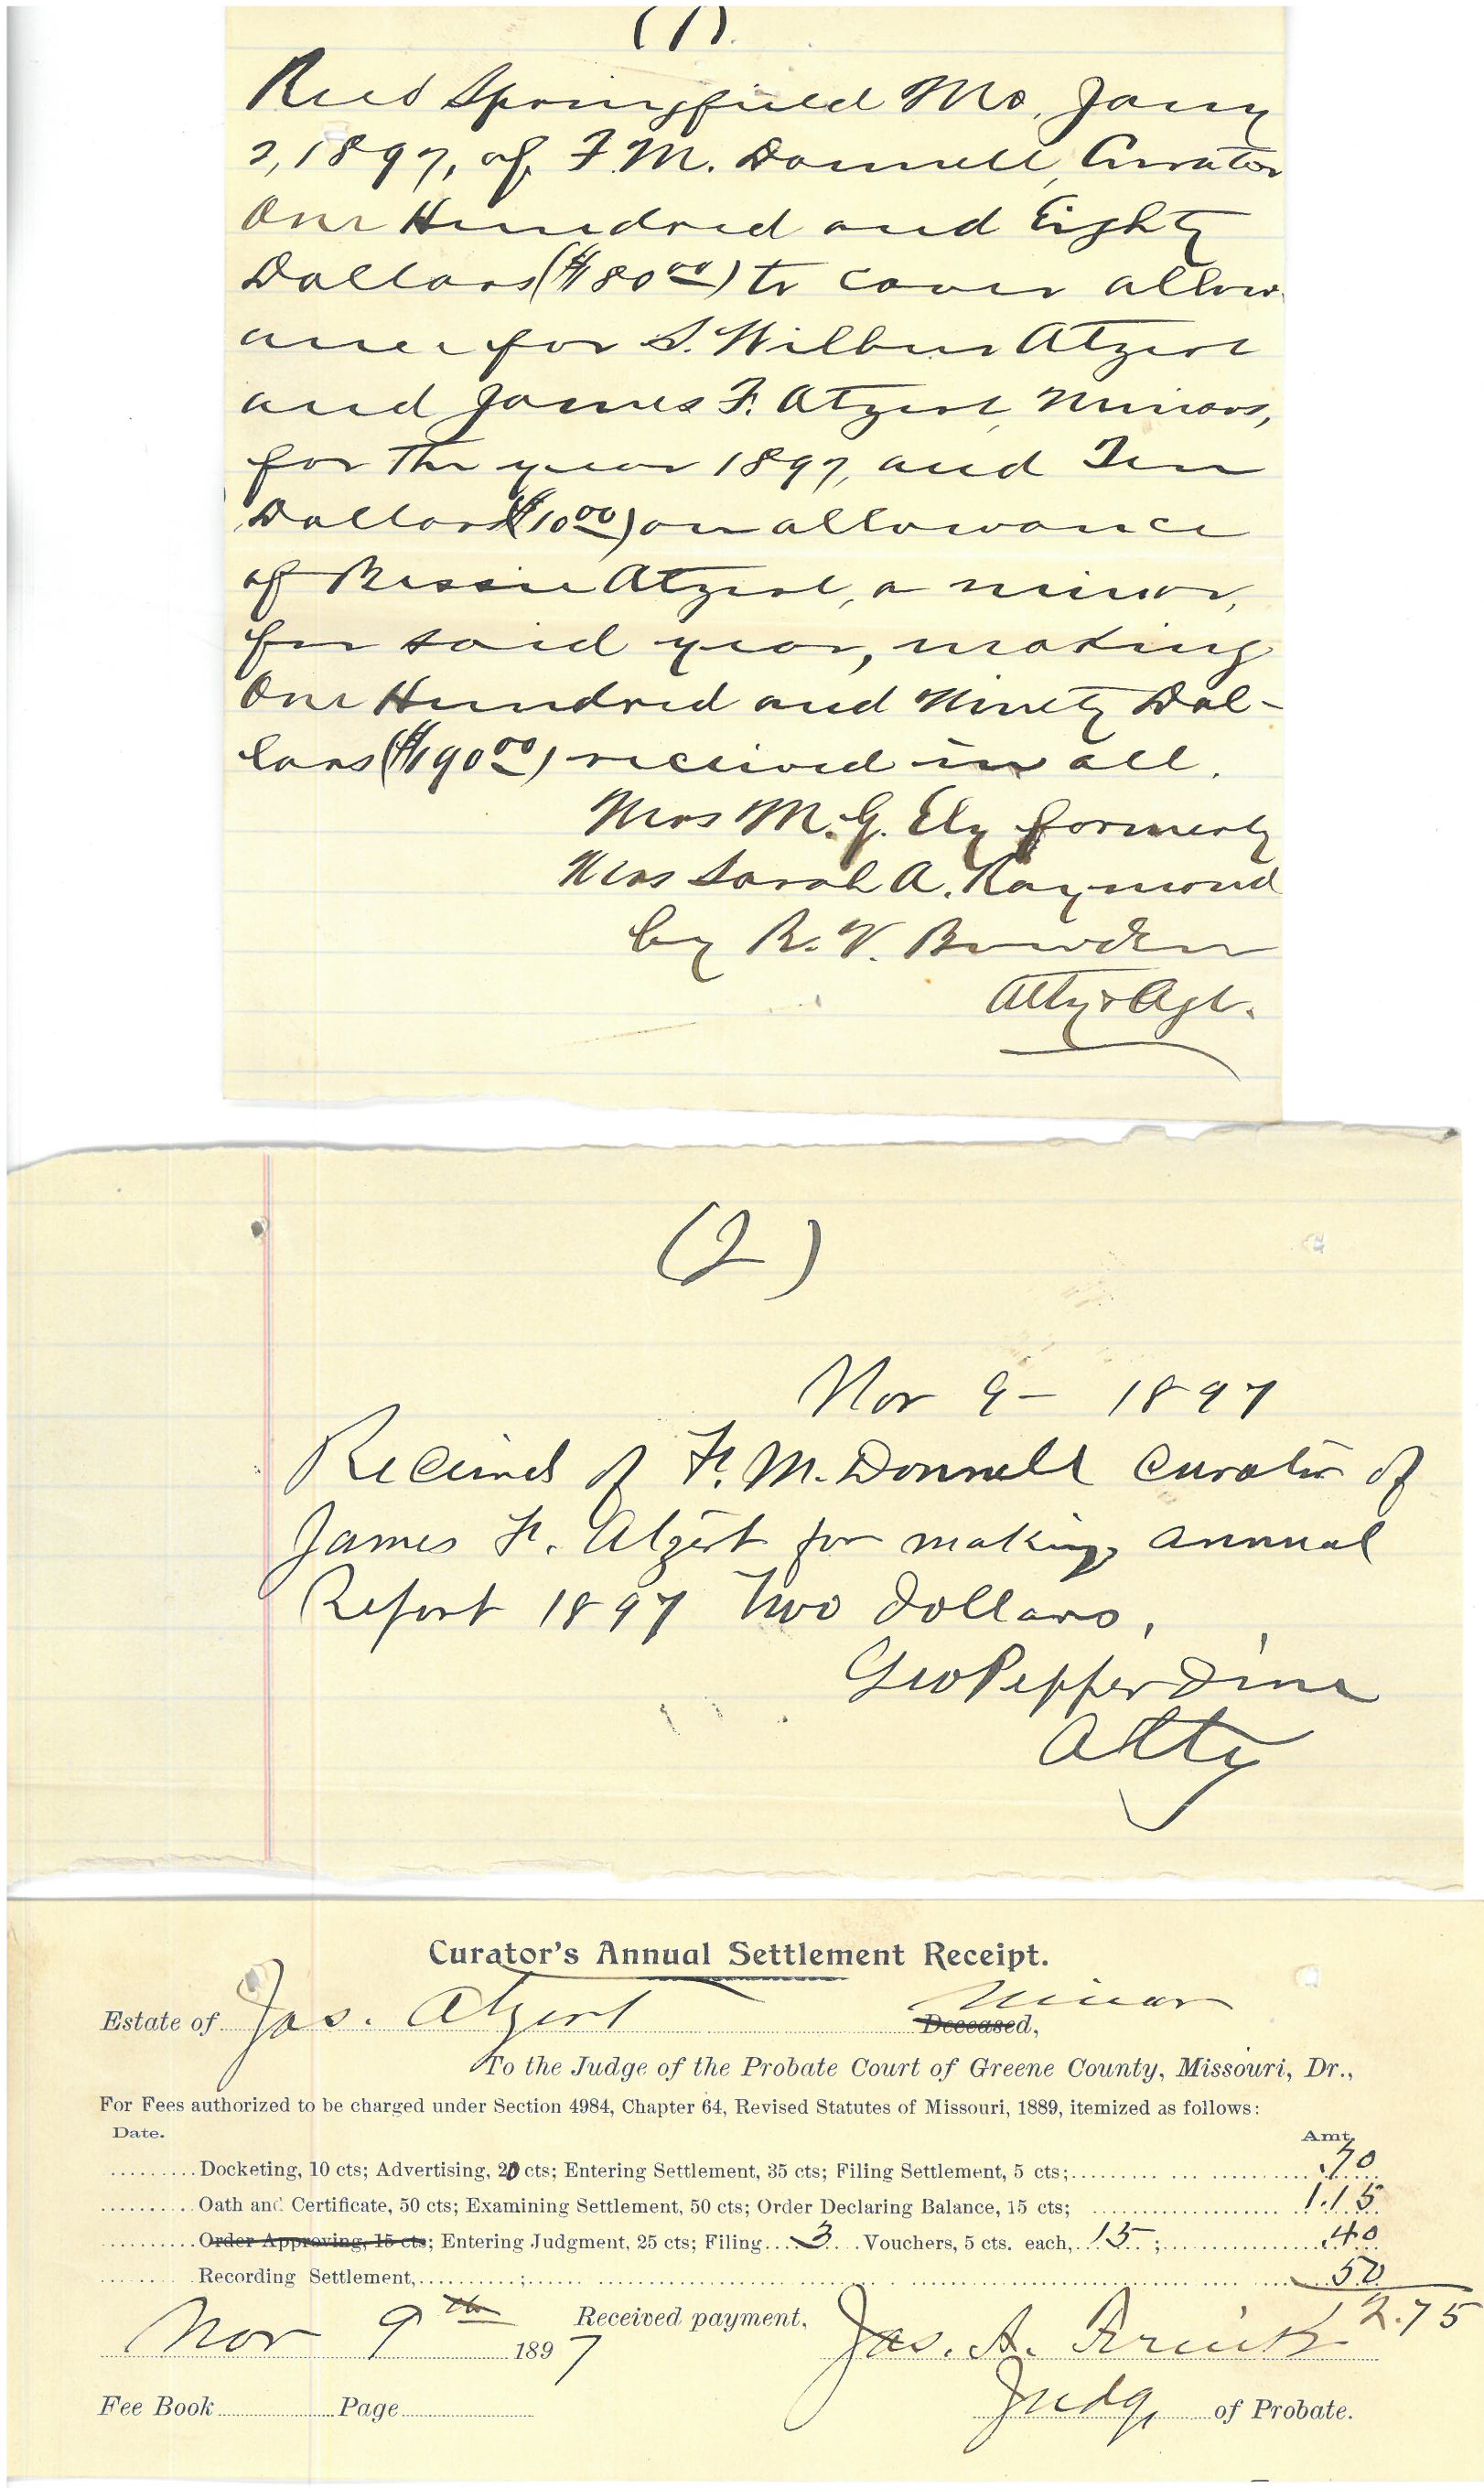 (1).
Recd Springfield Mo. Jany
2, 1897, of F. M. Donnell, Curator
One Hundred and Eighty
Dollars ($180.00) to cover allow-
ance for S. Wilbur Atzert
and James F. Atzert, minors,
for the year 1897, and Ten
Dollars ($10.00) on allowance
of Bessie Atzert, a minor,
for said year, making
One Hundred and Ninety Dol-
lars ($190.00) received in all.
Mrs M. G. Ely formerly
Mrs Sarah A. Raymond
by R. V. Bowden
Atty & Agt.
(2)
Nov 9 - 1897
Received of F. M. Donnell Curator of
James F. Atzert for making annual
Report 1897 Two dollars,
Geo Pepperdine
Atty
Curator's Annual Settlement Receipt.
Minor
Estate of Jas. Atzert Deceased,
To the Judge of the Probate Court of Greene County, Missouri, Dr.,
For Fees authorized to be charged under Section 4984, Chapter 64, Revised Statutes of Missouri, 1889, itemized as follows:
Date. Amt.
Docketing, 10 cts; Advertising, 20 cts; Entering Settlement, 35 cts; Filing Settlement, 5 cts; .70
Oath and Certificate, 50 cts; Examining Settlement, 50 cts; Order Declaring Balance, 15 cts; 1.15
Order Approving, 15 cts; Entering Judgment, 25 cts; Filing 3 Vouchers, 5 cts. each, 15; .40
Recording Settlement, ; 50
2.75
Nov 9th 1897 Received payment, Jas. A. Frink
Fee Book Page Judge of Probate.